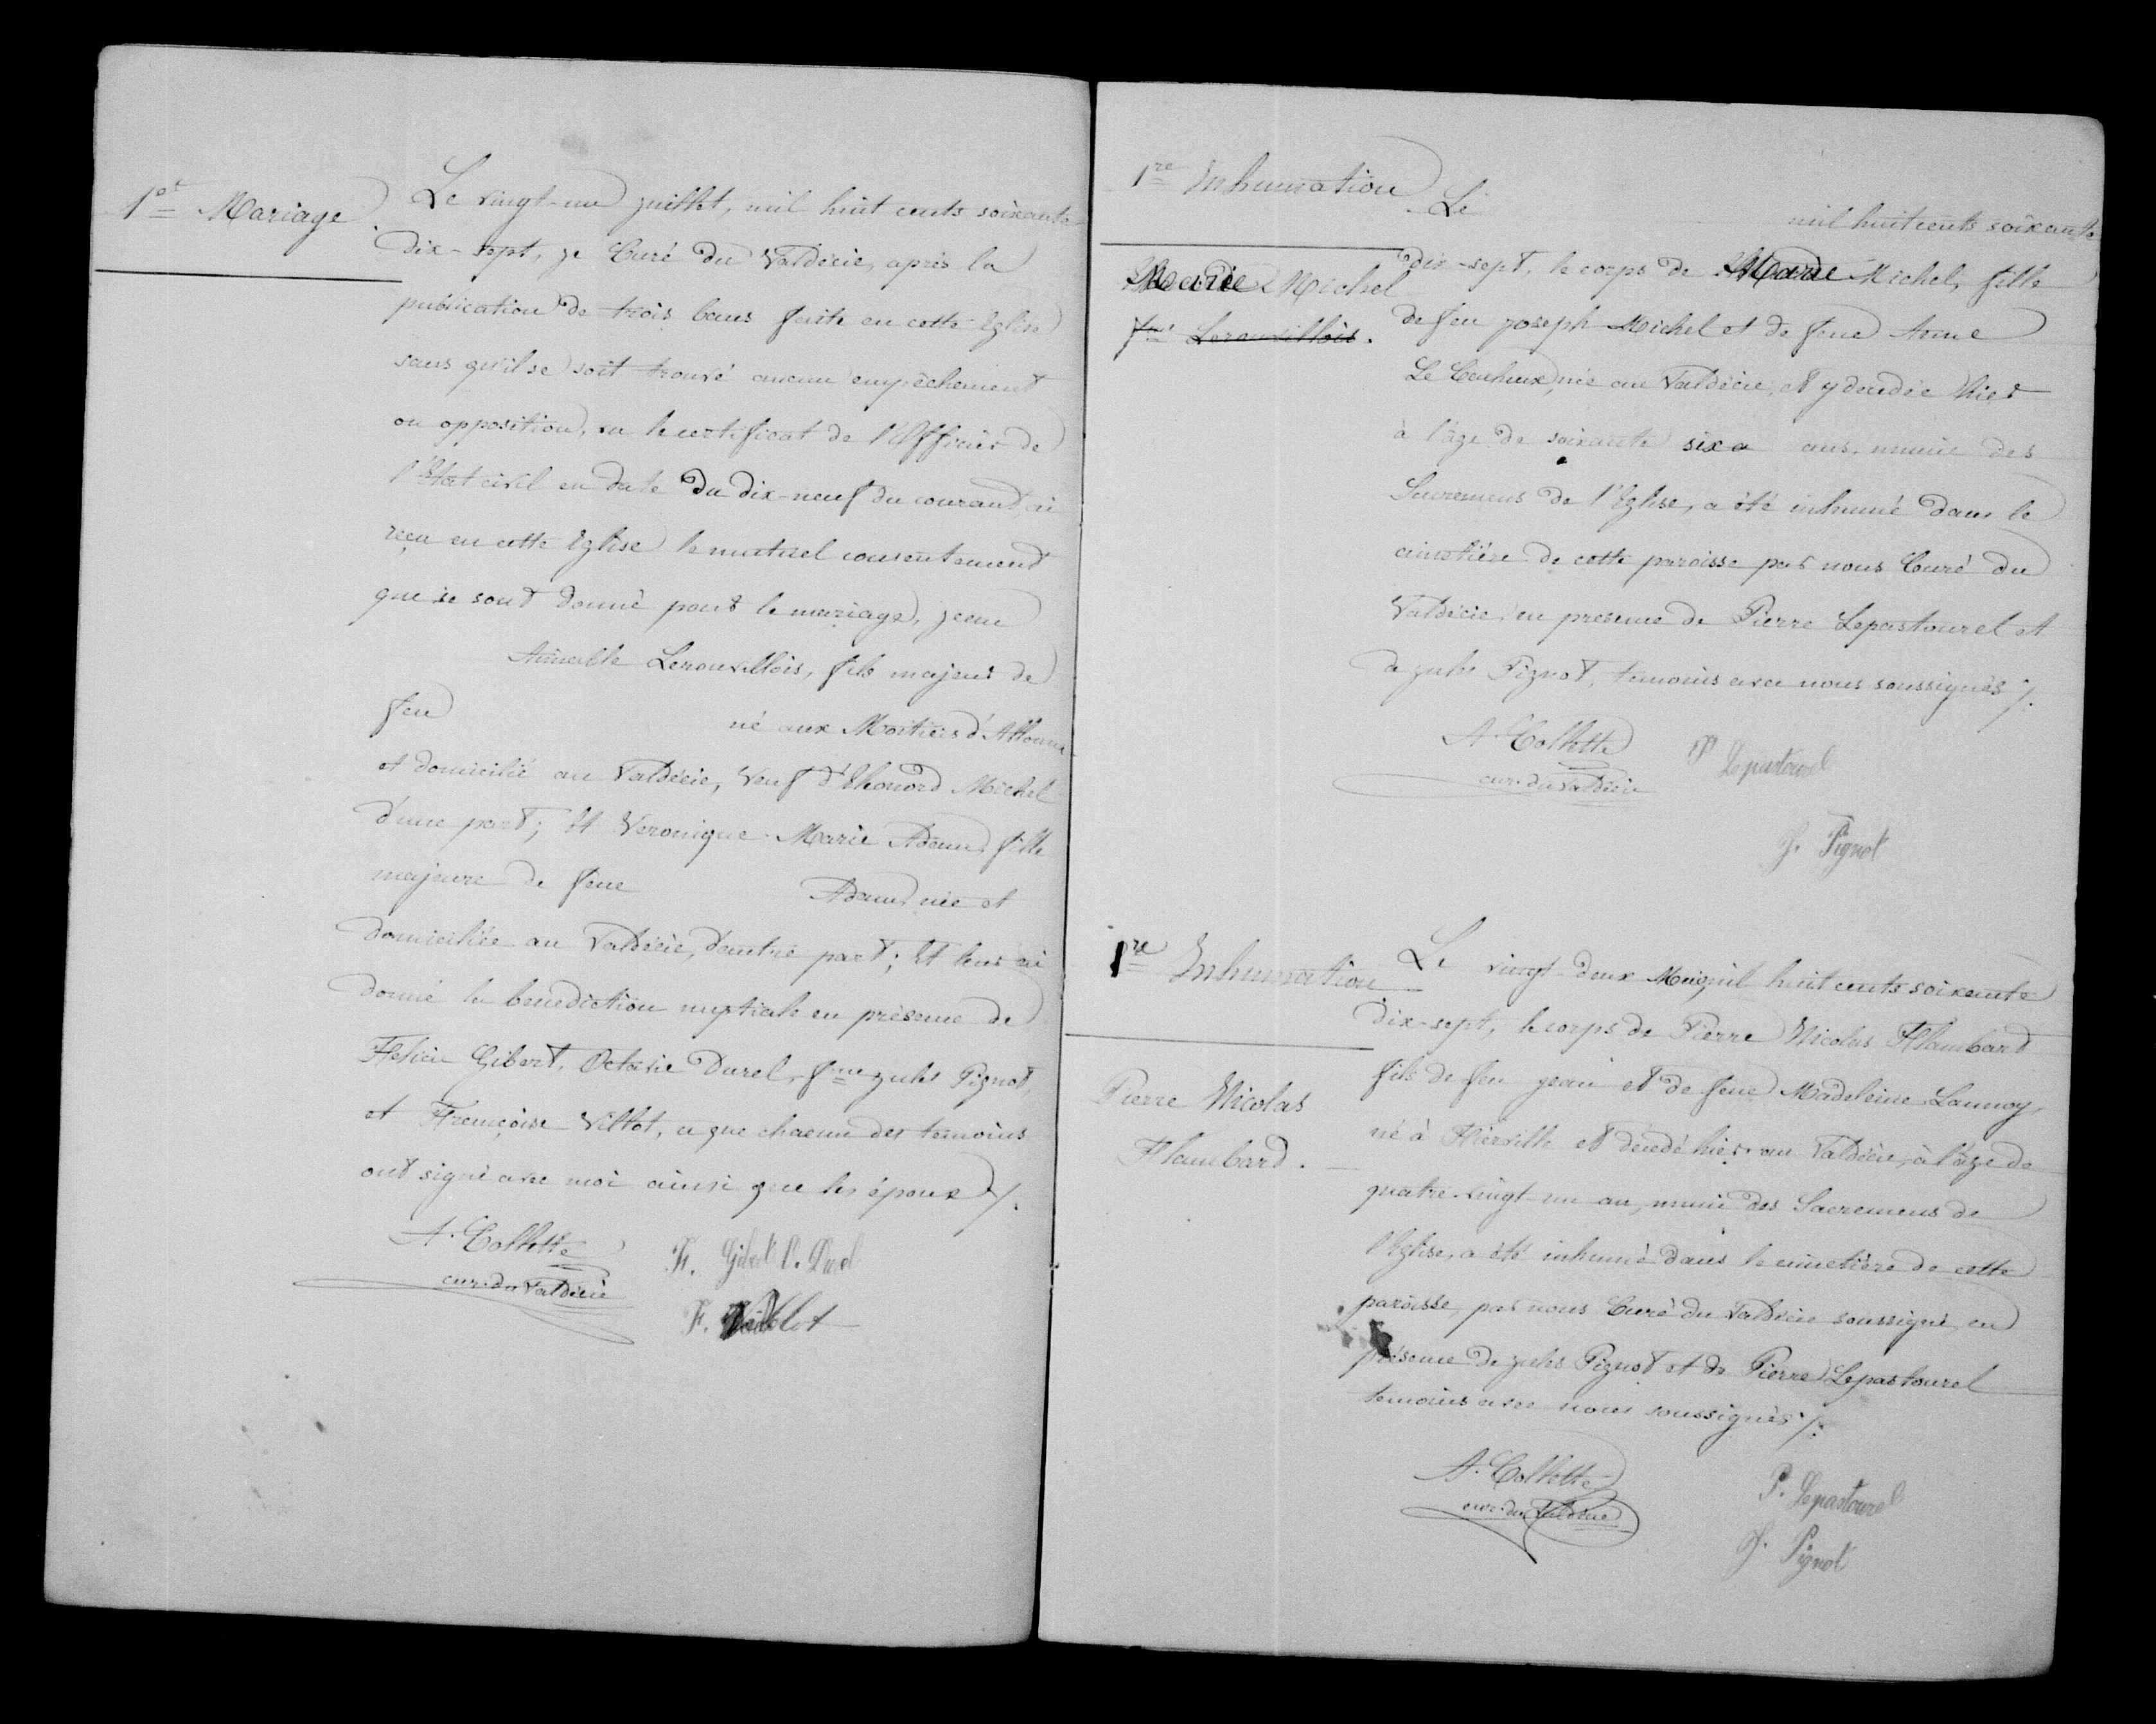 1er Mariage
Le vingt-un juillet, mil huit cents soixante
dix-sept, je Curé du Valdécie, après la
publication de trois bans faite en cette Eglise
sans qu'il se soit trouvé aucun empêchement
ou opposition, vu le certificat de l'Officier de
l'Etat civil en date du dix-neuf du courant, ai
reçu en cette Eglise le mutuel consentement
que se sont donné pour le mariage, jean
Aimable Lerouvillois, fils majeur de
feu né aux Moitiers d'Allonne
et domicilié au Valdécie, Veuf d' Michel
d'une part; Et Veronique Marie Adam, fille
majeure de feue Adam, née et
domiciliée au Valdécie, d'autre part; Et leur ai
donné la benediction nuptiale en présence de
Felicie Gibert, Octavie Durel, fme jules Pignot,
et Françoise Villot, ce que chacun des temoins
ont signé avec moi ainsi que les époux ./.
A. Collette
cur. du Valdécie
F. Gibert O. Durel
F. Villot
1re Inhumation
Marie Michel
fme Lerouvillois.
Le mil huit cents soixante
dix-sept, le corps de Marie Michel, fille
de feu joseph Michel et de feue Anne
Le née au Valdécie, et y décedée hier
à l'âge de soixante six ans, munie des
Sacremens de l'Eglise, a été inhumé dans le
cimetière de cette paroisse par nous Curé du
Valdécie, en presence de Pierre Lepastourel et
de jules Pignot, temoins avec nous soussignés ./.
A. Collette
cur. du Valdécie
P Lepastourel
J. Pignot
1re Inhumation
Pierre Nicolas
Flambard.
Le vingt-deux Mai, mil huit cents soixante
dix-sept, le corps de Pierre Nicolas Flambard
fils de feu jean et de feue Madeleine Launoy,
né à Fierville et décedé hier au Valdécie, à l'âge de
quatre-vingt-un an, muni des Sacremens de
l'Eglise, a été inhumé dans le cimetière de cette
paroisse, par nous Curé du Valdécie soussigné, en
présence de jules Pignot et de Pierre Lepastourel
temoins avec nous soussignés ./.
A. Collette
cur. du Valdécie
P. Lepastourel
J. Pignot